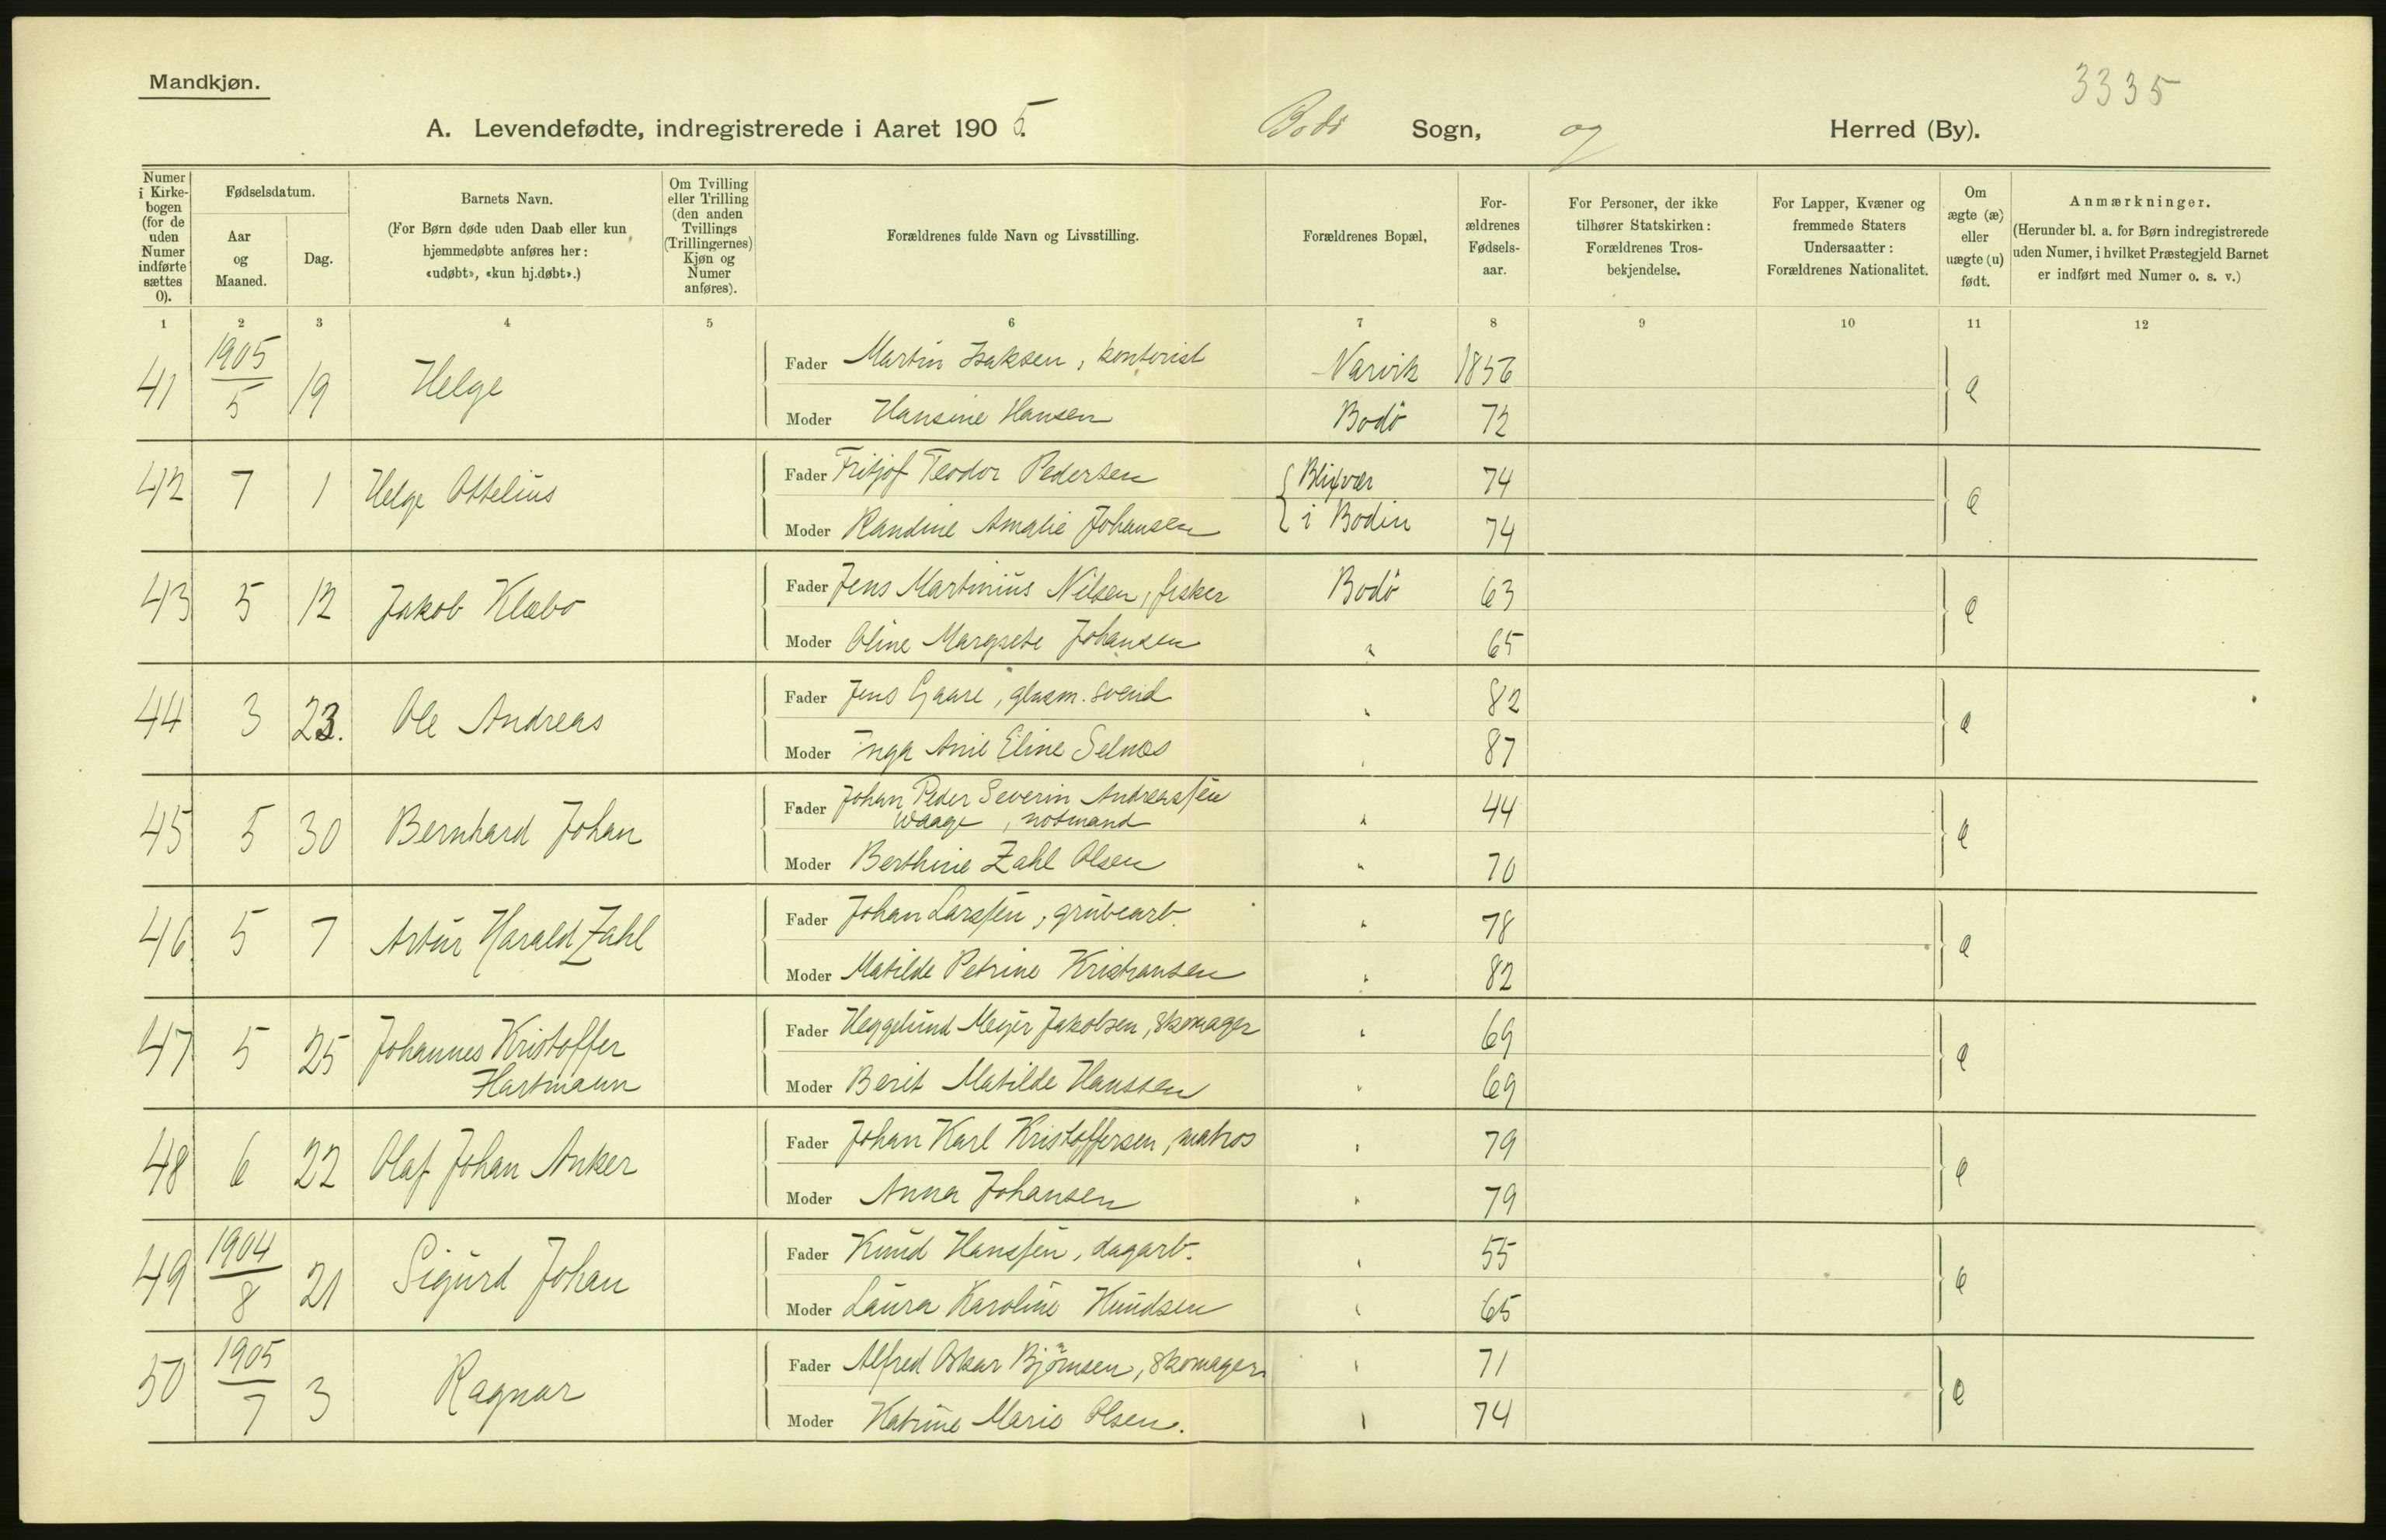 Mandkjøn.
3335
A. Levendefødte, indregistrerede i Aaret 1905. Bodø Sogn, og Herred (By).
Numer i Kirkebogen (for de uden Numer indførte sættes 0).
Fødselsdatum.
Aar og Maaned.
Dag.
Barnets Navn.
(For Børn døde uden Daab eller kun hjemmedøbte anføres her: «udøbt», «kun hj.døbt».)
Om Tvilling eller Trilling (den anden Tvillings (Trillingernes) Kjøn og Numer anføres).
Forældrenes fulde Navn og Livsstilling.
Forældrenes Bopæl,
Forældrenes Fødselsaar.
For Personer, der ikke tilhører Statskirken: Forældrenes Trosbekjendelse.
For Lapper, Kvæner og fremmede Staters Undersaatter: Forældrenes Nationalitet.
Om ægte (æ) eller uægte (u) født.
Anmærkninger.
(Herunder bl. a. for Børn indregistrerede uden Numer, i hvilket Præstegjeld Barnet er indført med Numer o. s. v.)
1 2 3 4 5 6 7 8 9 10 11 12
41 1905/5 19 Helge Fader Martin Isaksen, kontorist Narvik 1856 e
Moder Hansine Hansen Bodø 72
42 7 1 Helge Ottelius Fader Fritjof Teodor Pedersen Blixvær 74 e
Moder Randine Amalie Johansen i Bodin 74
43 5 12 Jakob Klæbo Fader Jens Martinius Nilsen, fisker Bodø 63 e
Moder Oline Margrete Johansen " 65
44 3 23. Ole Andreas Fader Jens Gaare, glasm. svend " 82 e
Moder Inga Anie Eline Selnæs " 87
45 5 30 Bernhard Johan Fader Johan Peder Severin Andreassen
Waage, notmand " 44 e
Moder Berthine Zahl Olsen " 70
46 5 7 Artur Harald Zahl Fader Johan Larssen, grubearb. " 78 e
Moder Matilde Petrine Kristiansen " 82
47 5 25 Johannes Kristoffer
Hartmann Fader Heggelund Meyer Jakobsen, skomager " 69 e
Moder Berit Matilde Hanssen " 69
48 6 22 Olaf Johan Anker Fader Johan Karl Kristoffersen, matros " 79 e
Moder Anna Johansen " 79
49 1904/8 21 Sigurd Johan Fader Knud Hanssen, dagarb. " 55 e
Moder Laura Karoline Knudsen " 65
50 1905/7 3 Ragnar Fader Alfred Oskar Bjørnsen, skomager " 71 e
Moder Katrine Marie Olsen. " 74